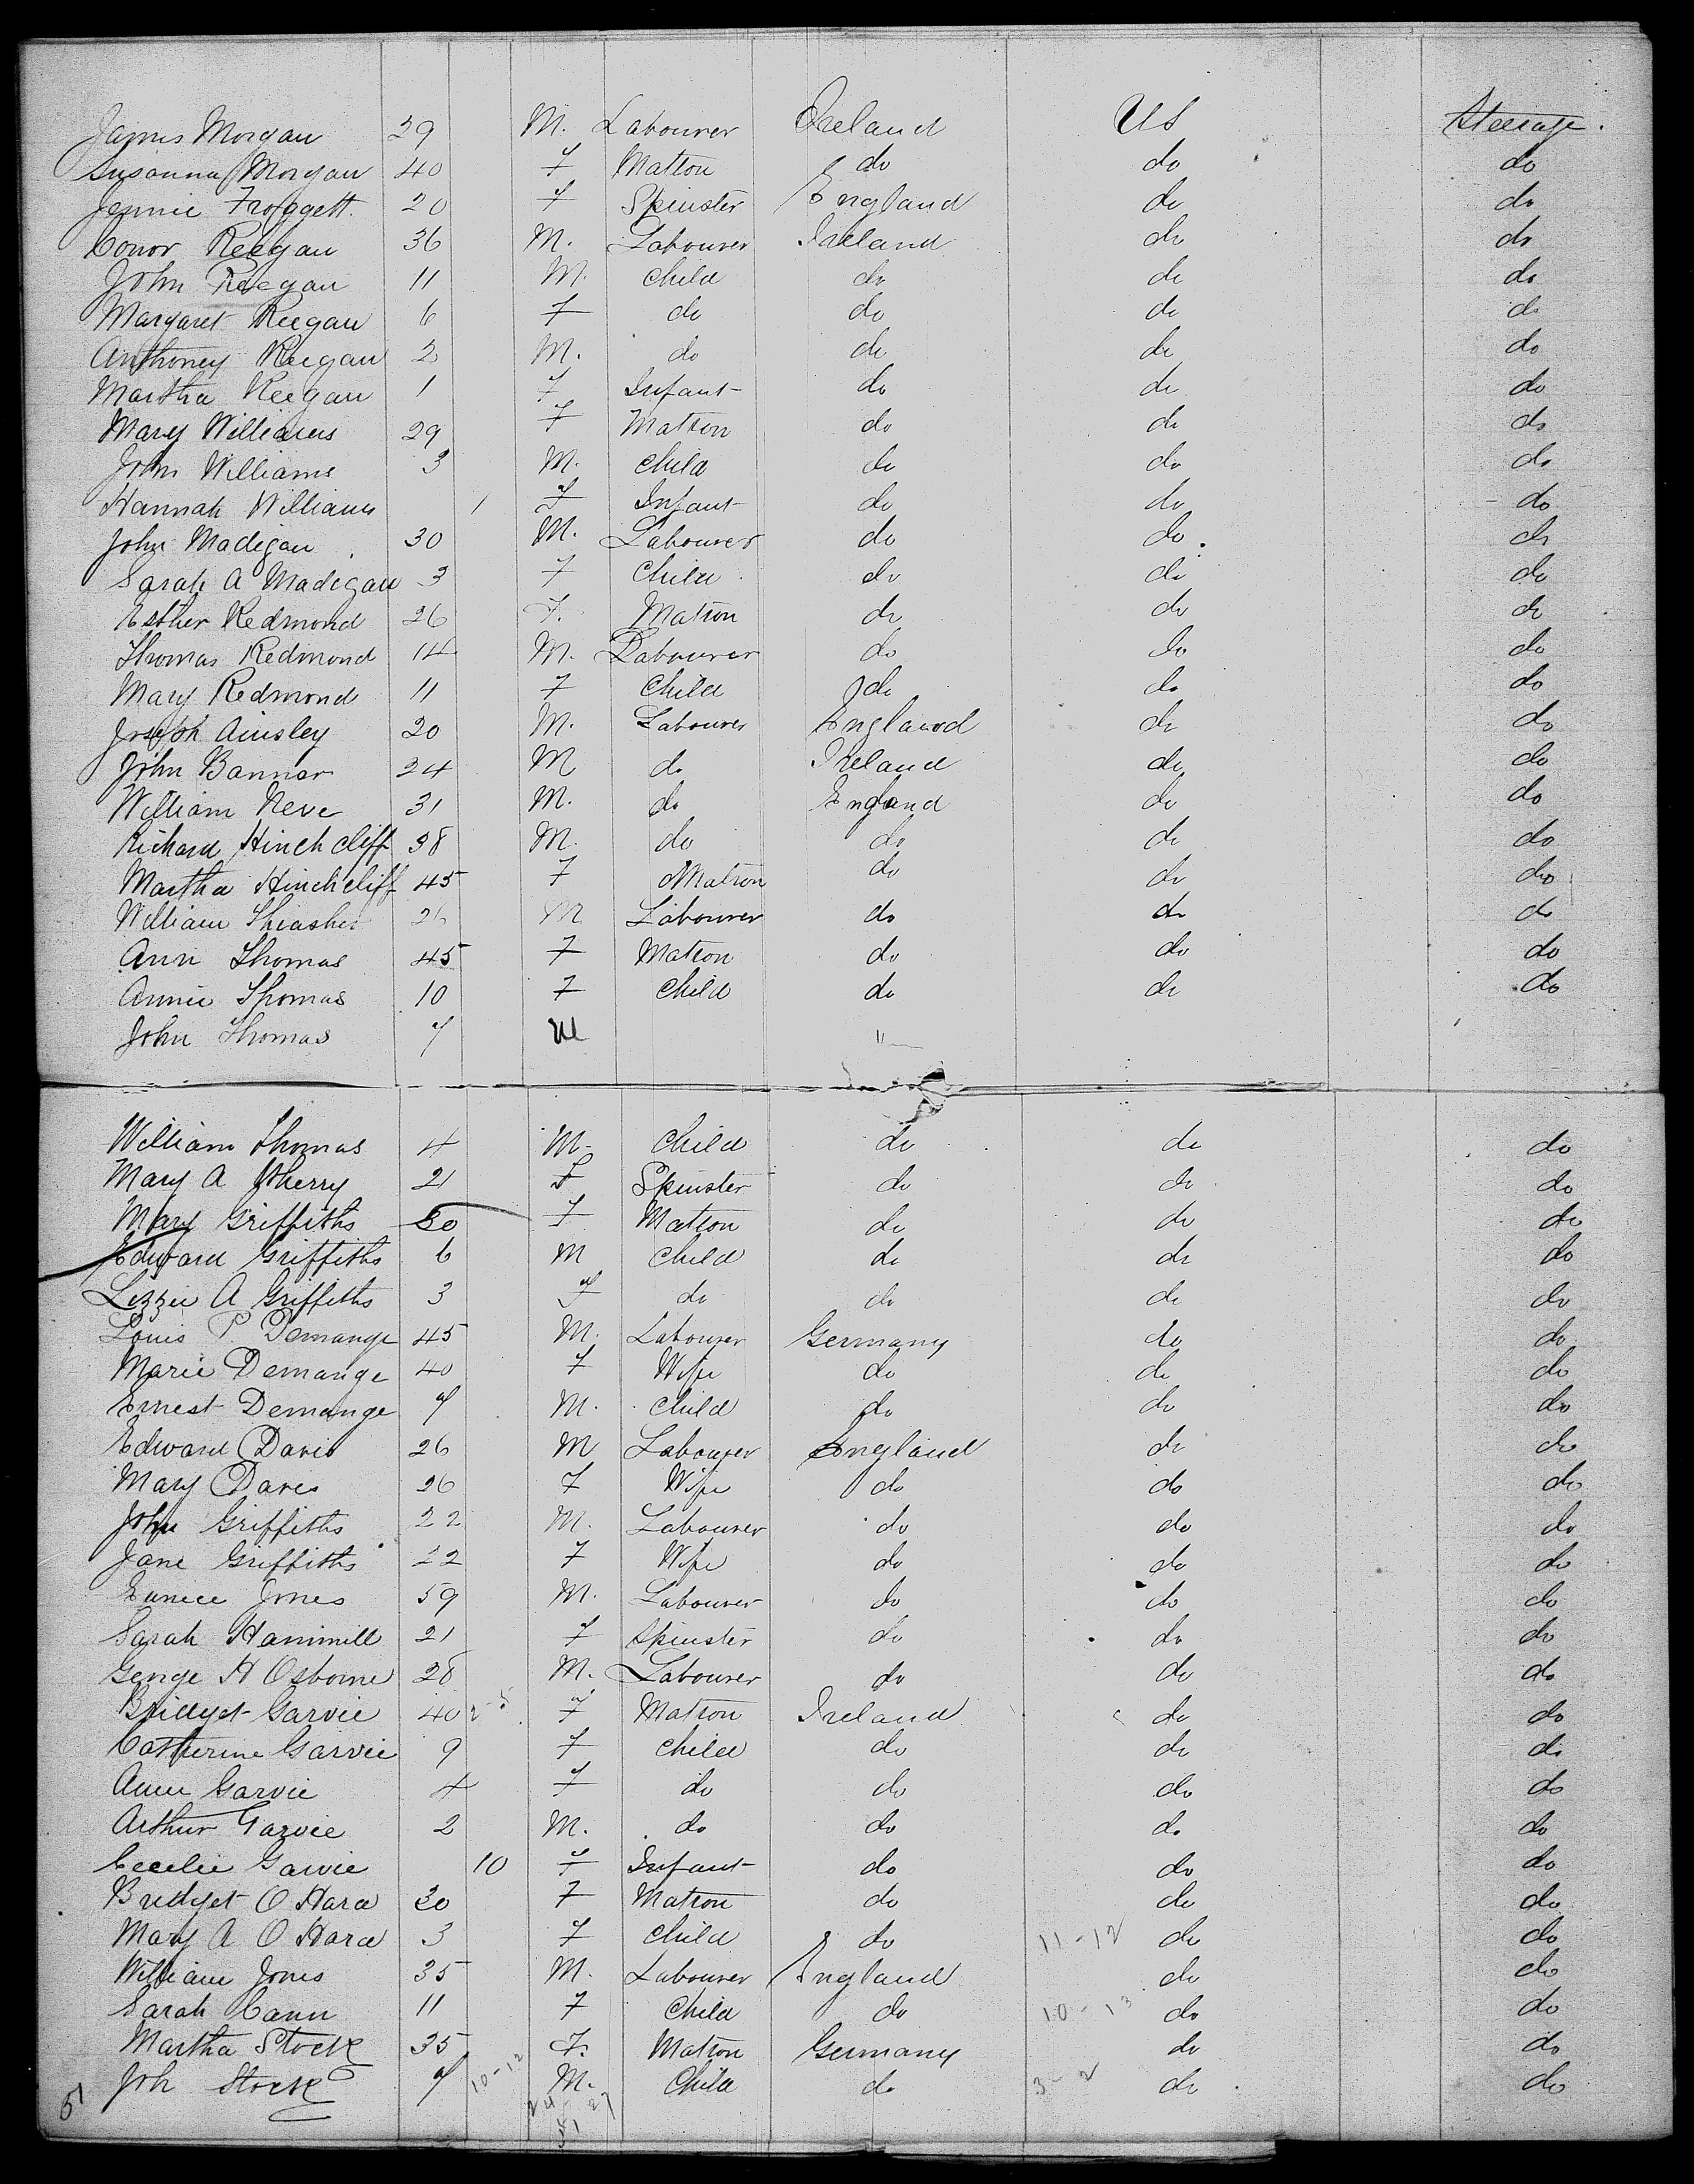 James Morgan 29 M. Labourer Ireland US Steerage.
Susanna Morgan 40 F Matron do do do
Jennie Froggett. 20 F Spinster England do do
Conor Reegan 36 M. Labourer Ireland do do
John Reegan 11 M. Child do do do
Margaret Reegan 6 F do do do do
Anthoney Reegan 2 M. do do do do
Martha Reegan 1 F Infant do do do
Mary Williams 29 F Matron do do do
John Williams 3 M. Child do do do
Hannah Williams 1 F Infant do do do
John Madigan 30 M. Labourer do do do
Sarah A Madigan 3 F Child do do do
Esther Redmond 26 F. Matron do do do
Thomas Redmond 14 M. Labourer do do do
Mary Redmond 11 F Child do do do
Joseph Ainsley 20 M. Labourer England do do
John Bannar 24 M do Ireland do do
William Neve 31 M. do England do do
Richard Hinchcliff 38 M. do do do do
Martha Hinchcliff 45 F Matron do do do
William 26 M Labourer do do do
Ann Thomas 45 F Matron do do do
Annie Thomas 10 F Child do do do
John Thomas 7 M "
William Thomas 4 M. Child do do do
Mary A 21 F Spinster do do do
Mary Griffiths 30 F Matron do do do
Edward Griffiths 6 M Child do do do
Lizzie A Griffiths 3 F do do do do
Louis P. Demange 45 M. Labourer Germany do do
Marie Demange 40 F Wife do do do
Ernest Demange 7 M. Child do do do
Edward Davis 26 M Labourer England do do
Mary Davis 26 F Wife do do do
John Griffiths 22 M. Labourer do do do
Jane Griffiths 22 F Wife do do do
Eunice Jones 59 M. Labourer do do do
Sarah Hammill 21 F Spinster do do do
George H Osborne 28 M. Labourer do do do
Bridget Garvie 40 2-5 F Matron Ireland do do
Catherine Garvie 9 F Child do do do
Ann Garvie 4 F do do do do
Arthur Garvie 2 M. do do do do
Cecelie Garvie 10 F Infant do do do
Bridget O Hara 30 F Matron do do do
Mary A O Hara 3 F Child do 11-12 do do
William Jones 35 M. Labourer England do do
Sarah Cann 11 F Child do 10-13 do do
Martha Stock 35 F. Matron Germany do do
Joh Stock 7 10-12 M. Child do 3-2 do do
51 24 27
51